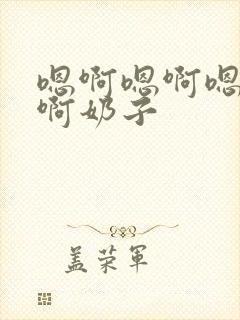 嗯啊嗯啊嗯
啊奶子
盖荣军